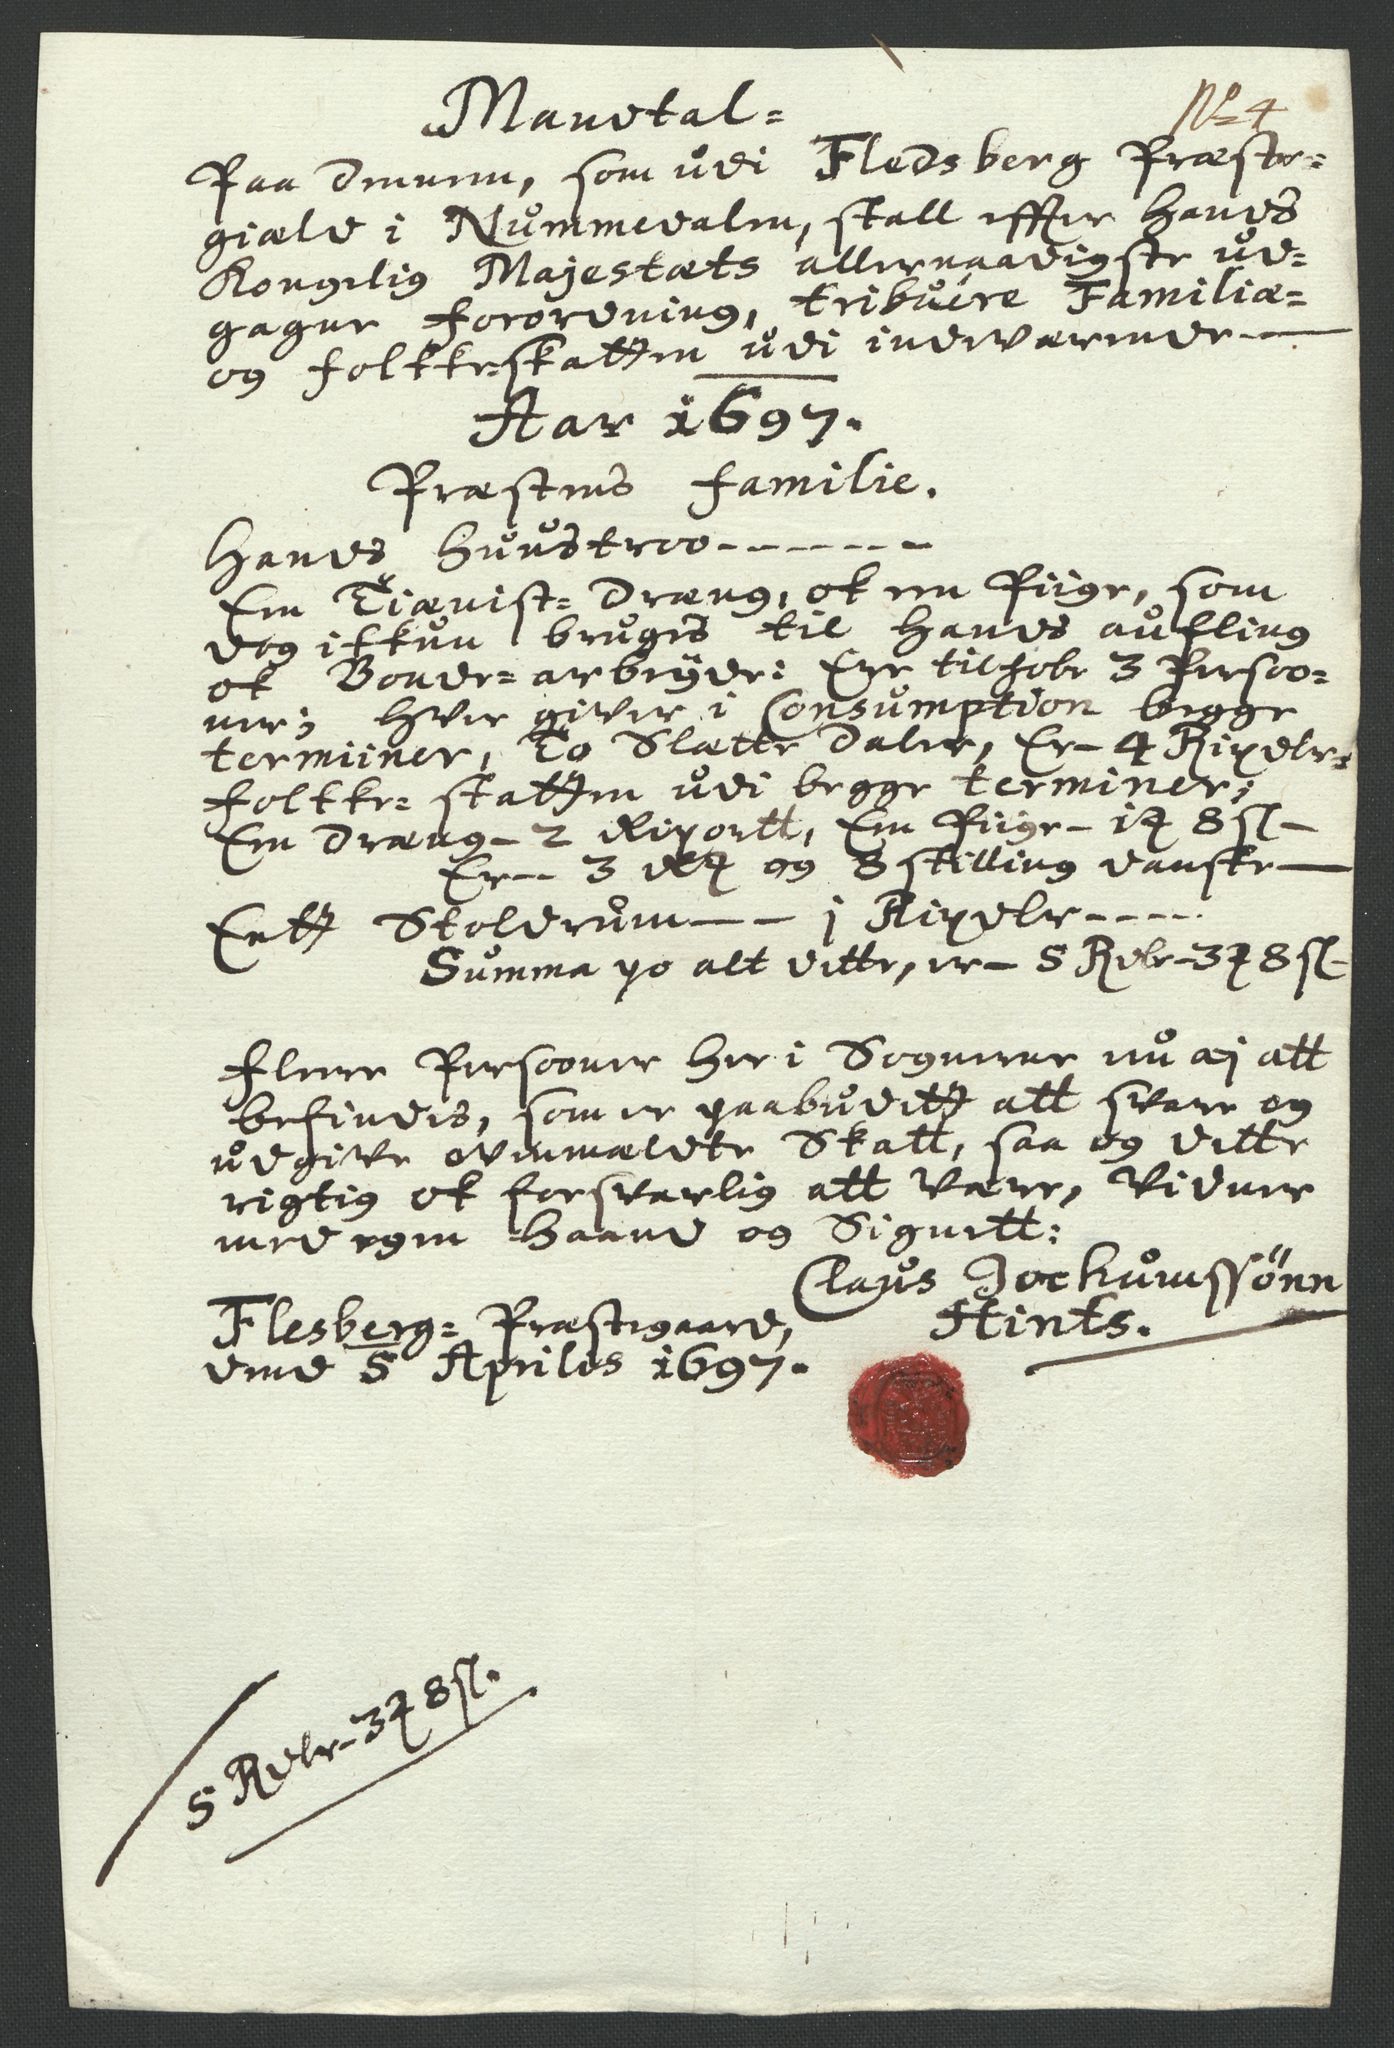 Mandtal=
No 4
Paa dennem, som udi Fledsberg Præste=
giæld i Nummedalen, skall effter Hands
Kongelig Majestæts allernaadigste ud=
gagne forordning, tribuere Familiæ=
og folkkeskatten udi indeværende
Aar 1697.
Præstens familie.
Hands Huustroo
Een Tiænist= Dræng, ok een Piige, som
dog ikkun brugis til Hands aufling
ok Bonde= arbeyde: Ere tilsobe 3 Persoo=
ner; Hver giver i Consumption begge
termiiner, To Slætte Daler, Er- 4 Rixdlr=
folkke= skatten udi begge terminer;
Een Dræng- 2 Rixortt, Een Piige- 1 8 sl-
Er- 3 og 8 skilling danske
Eett Stoldrum — 1 Rixdlr
Summa po alt dette, er- 5 Rdlr- 3 8 sl-
Fleere Persooner her i Sognene nu ej att
befindis, som er paabuditt att svare og
udgive ovenmældte Skatt, saa og dette
rigtig ok forsvarlig att være, Vidner
med egen Haand og Signett:
Claus Jochumssönn
Hints.
Flesberg= Præstegaard,
dend 5 Apriles 1697.
5 Rdlr- 3 8 sl.